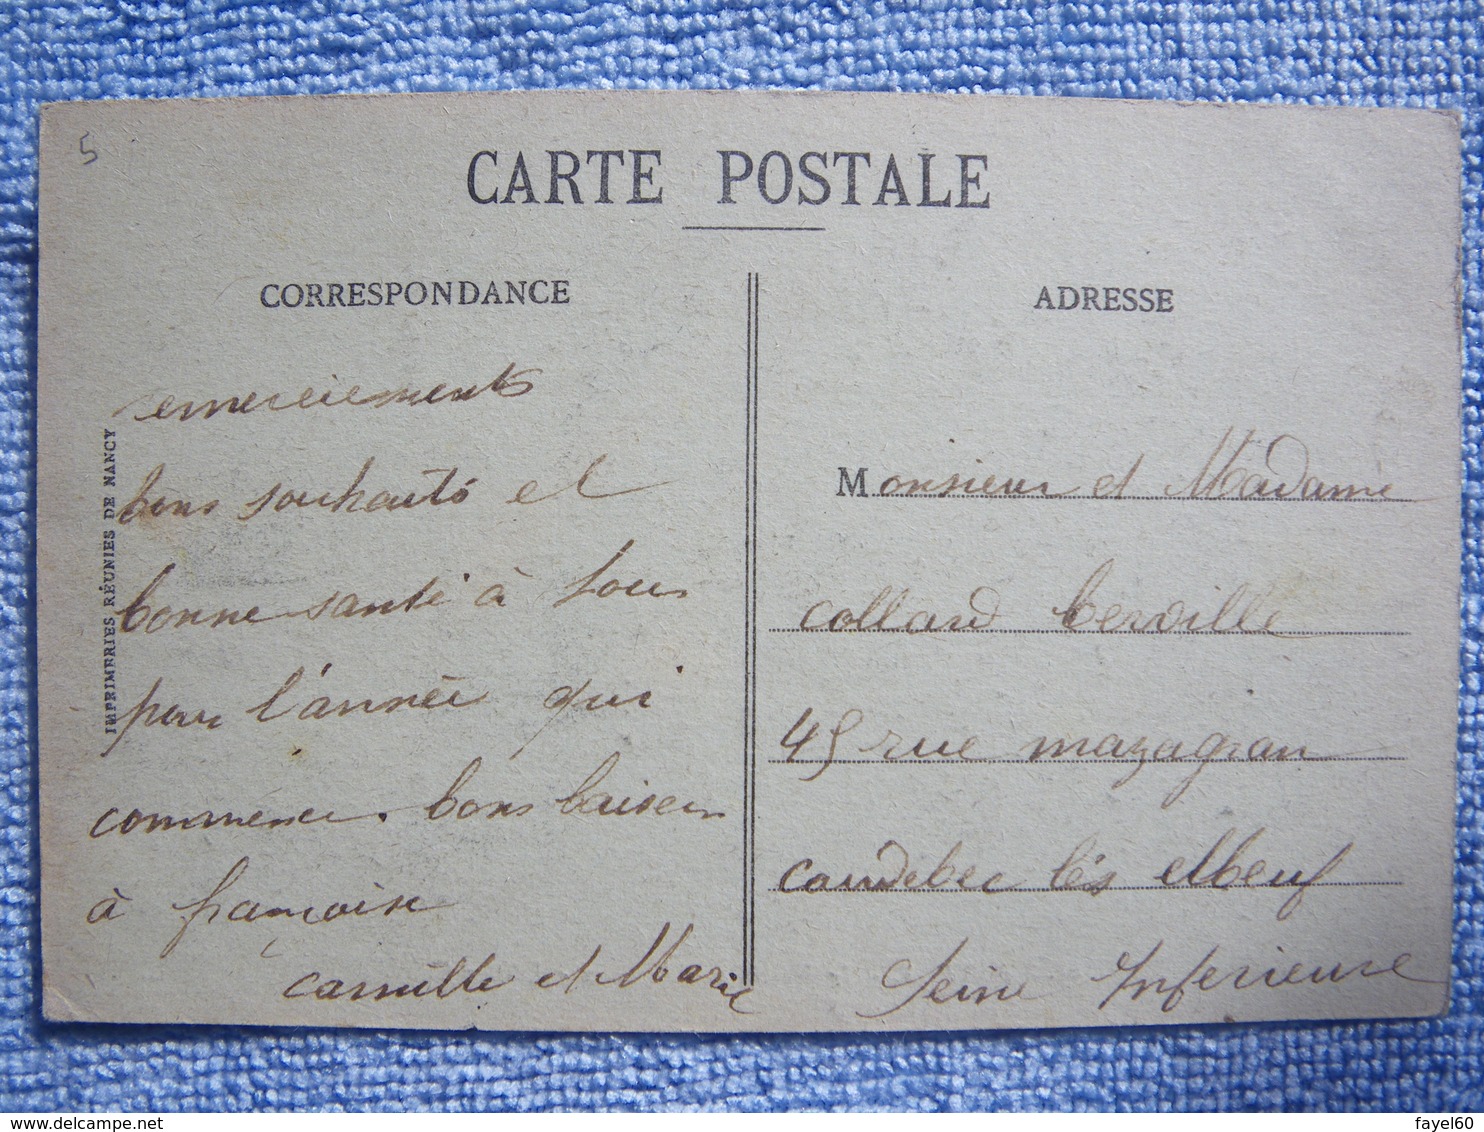 5
CARTE POSTALE
CORRESPONDANCE
remerciements
bons souhaits et
bonne santé à tous
pour l'année qui
commence. bons baisers
à françoise
camille et Marie
IMPRIMERIES RÉUNIES DE NANCY
ADRESSE
Monsieur et Madame
collard berville
45 rue mazagran
caudebec lès elbeuf
Seine Inferieure
delcampe.net
fayel60